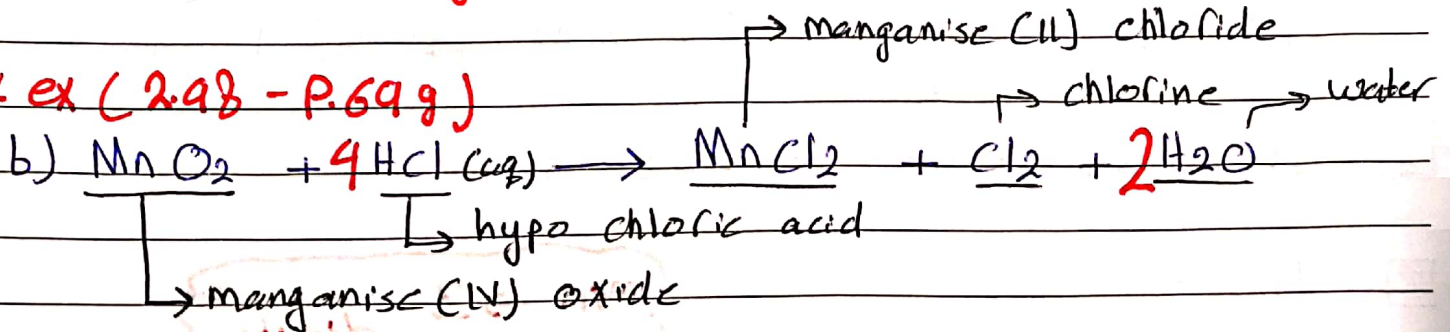 → manganise (II) chloride
ex (2.98 - P.69g)
→ chlorine → water
b) MnO2 + 4HCl (aq) → MnCl2 + Cl2 + 2H2O
↳ hypo chloric acid
→ manganise (IV) oxide